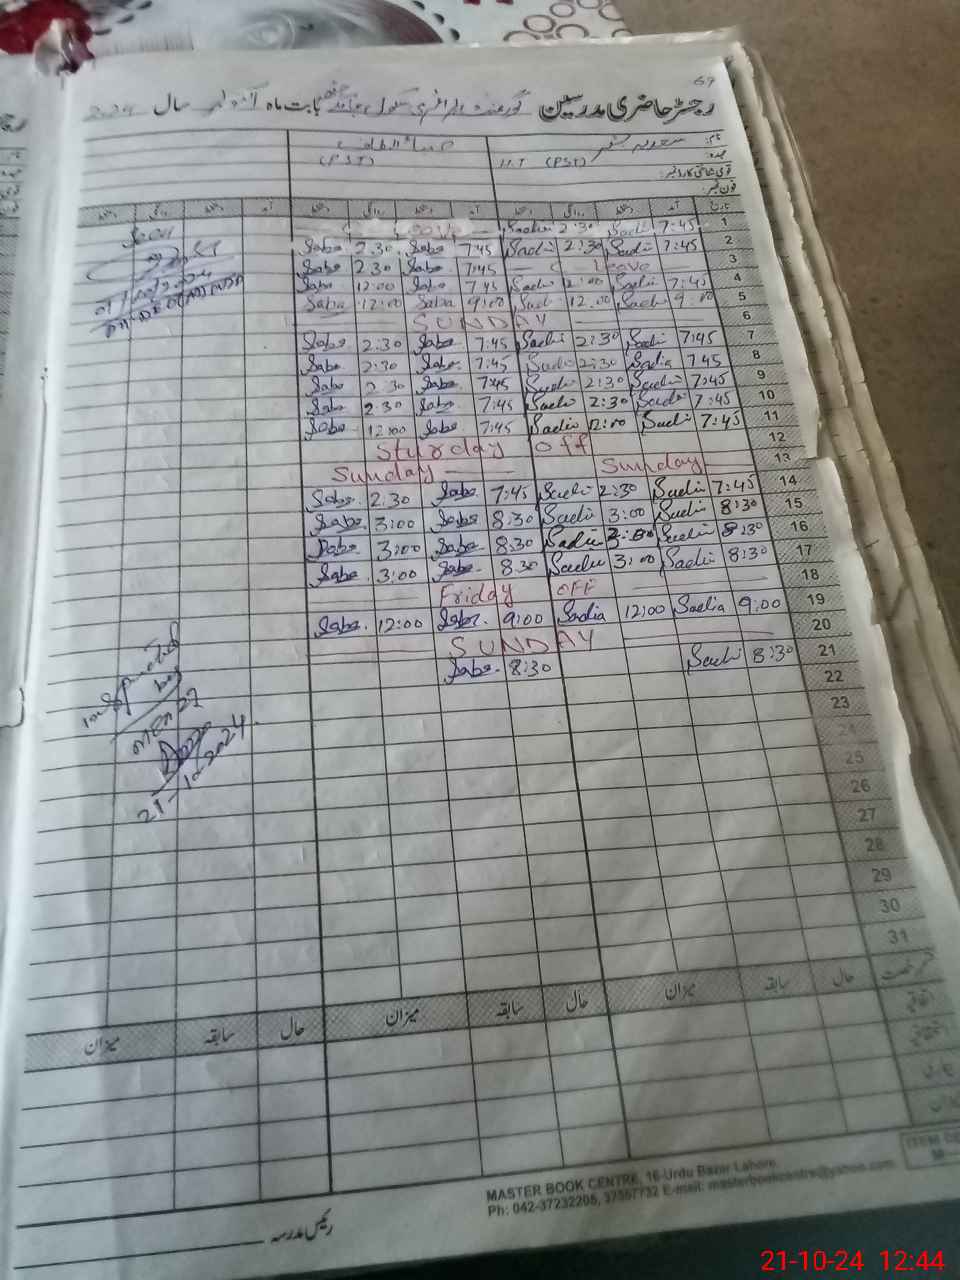 67
رجسٹر حاضری مدرسین گورنمنٹ پرائمری سکول بابت ماہ اکتوبر سال 2024
نام: سعدیہ
عہدہ: H.T (PST) (PST)
قومی شناختی کارڈ نمبر:
فون نمبر:
تاریخ آمد دستخط روانگی دستخط آمد دستخط روانگی دستخط آمد دستخط روانگی دستخط
1 7:45 Sadi 2:30 Sadia Leave
2 7:45 Sadi 2:30 Sadi 7:45 Saba 2:30 Saba
3 Leave 7:45 Saba 2:30 Saba
4 7:45 Sadi 12:00 Sadi 7:45 Saba 12:00 Saba
5 9:00 Sadi 12:00 Sadi 9:00 Saba 12:00 Saba
6 SUNDAY
7 7:45 Sadi 2:30 Sadi 7:45 Saba 2:30 Saba
8 7:45 Sadia 2:30 Sadi 7:45 Saba 2:30 Saba
9 7:45 Sadi 2:30 Sadi 7:45 Saba 2:30 Saba
10 7:45 Sadi 2:30 Sadi 7:45 Saba 2:30 Saba
11 7:45 Sadi 12:00 Sadia 7:45 Saba 12:00 Saba
12 Sturday Off
13 Sunday Sunday
14 7:45 Sadi 2:30 Sadi 7:45 Saba 2:30 Saba
15 8:30 Sadi 3:00 Sadi 8:30 Saba 3:00 Saba
16 8:30 Sadi 3:00 Sadia 8:30 Saba 3:00 Saba
17 8:30 Sadi 3:00 Sadi 8:30 Saba 3:00 Saba
18 Friday OFF
19 9:00 Sadia 12:00 Sadia 9:00 Saba 12:00 Saba
20 SUNDAY
21 8:30 Sadi 8:30 Saba
22
23
24
25
26
27
28
29
30
31
21-10-2024
رخصت حال سابقہ میزان حال سابقہ میزان حال سابقہ میزان
اتفاقیہ
رئیس مدرسہ
MASTER BOOK CENTRE, 16-Urdu Bazar Lahore.
Ph: 042-37232205, 37357732 E-mail: masterbookcentre@yahoo.com
21-10-24 12:44